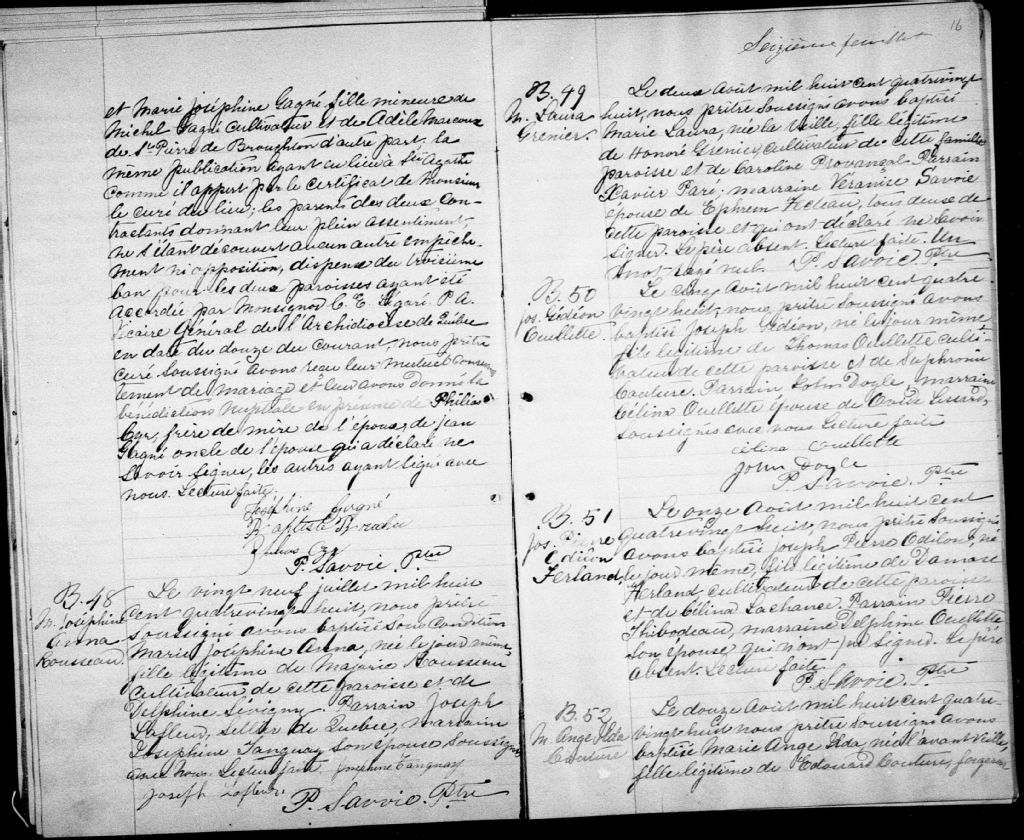 et Marie Joséphine Gagné fille mineure de
Michel Gagné Cultivateur et de Adèle Marcoux
de St Pierre de Broughton d'autre part, la
même publication ayant eu lieu à Ste Agathe
comme il appert par le certificat de Monsieur
le curé du lieu; les parents des deux con-
tractants donnant leur plein assentiment
ne s'étant découvert aucun autre empêche-
ment ni opposition, dispense du troisième
ban pour les deux paroisses ayant été
accordée par Monsignor C. E. Légaré P. A.
Vicaire Général de l'Archidiocèse de Québec
en date du douze du courant, nous prêtre
curé soussigné avons reçu leur mutuel consen
tement de mariage et leur avons donné la
bénédiction nuptiale en présence de Philias
frère de mère de l'époux, de Jean
Gagné oncle de l'épouse qui a déclaré ne
savoir signer, les autres ayant signé avec
nous. Lecture faite.
Joséphine Gagné
Baptiste
P. Savoie. Ptre
B. 48
M. Joséphine
Anna
Rousseau
Le vingt neuf juillet mil huit
cent quatrevingt huit, nous prêtre
soussigné avons baptisé sous condition
Marie Joséphine Anna, née le jour même
fille légitime de Majoric Rousseau
cultivateur de cette paroisse et de
Delphine Sévigny. Parrain Joseph
Lefleur, sellier de Québec, marraine
Joséphine Tanguay son épouse soussignés
avec nous. Lecture faite. Josephine Tanguay
Joseph
P. Savoie. Ptre
16
Seizième feuillet
B. 49
M. Laura
Grenier.
Le deux Août mil huit cent quatrevingt
huit, nous prêtre soussigné avons baptisé
Marie Laura, née la veille, fille légitime
de Honoré Grenier, cultivateur de cette famille
paroisse et de Caroline Provançal. Parrain
Xavier Paré. marraine Véranise Savoie
épouse de Ephrem Fecteau, tous deux de
cette paroisse et qui ont déclaré ne savoir
signer. Le père absent. Lecture faite. Un
mot rayé nul. P. Savoie Ptre
B. 50
Jos. Gédéon
Ouellette
Le cinq Août mil huit cent quatre
vingt huit, nous prêtre soussigné avons
baptisé Joseph Gédéon, né le jour même
fils légitime de Thomas Ouellette culti-
vateur de cette paroisse et de Sophronie
Couture. Parrain John Doyle, marraine
Célina Ouellette épouse de Onide Lessard,
soussignés avec nous Lecture faite
célina Ouellette
John Doyle
P. Savoie. Ptre
B. 51
Jos. Pierre
Edilon
Ferland
Le onze Août mil huit cent
quatrevingt huit, nous prêtre soussigné
avons baptisé Joseph Pierre Edilon, né
le jour même, fils légitime de Damase
Ferland, cultivateur de cette paroisse
et de Célina Lachance. Parrain Pierre
Thibodeau, marraine Delphine Ouellette
son épouse qui n'ont pu signer. Le père
absent. Lecture faite.
P. Savoie. Ptre
B. 52
M. Ange Ilda
Couture
Le douze Août mil huit cent quatre-
vingt huit nous prêtre soussigné avons
baptisé Marie Ange Ilda, née l'avant veille,
fille légitime de Edouard Couture, forgeron